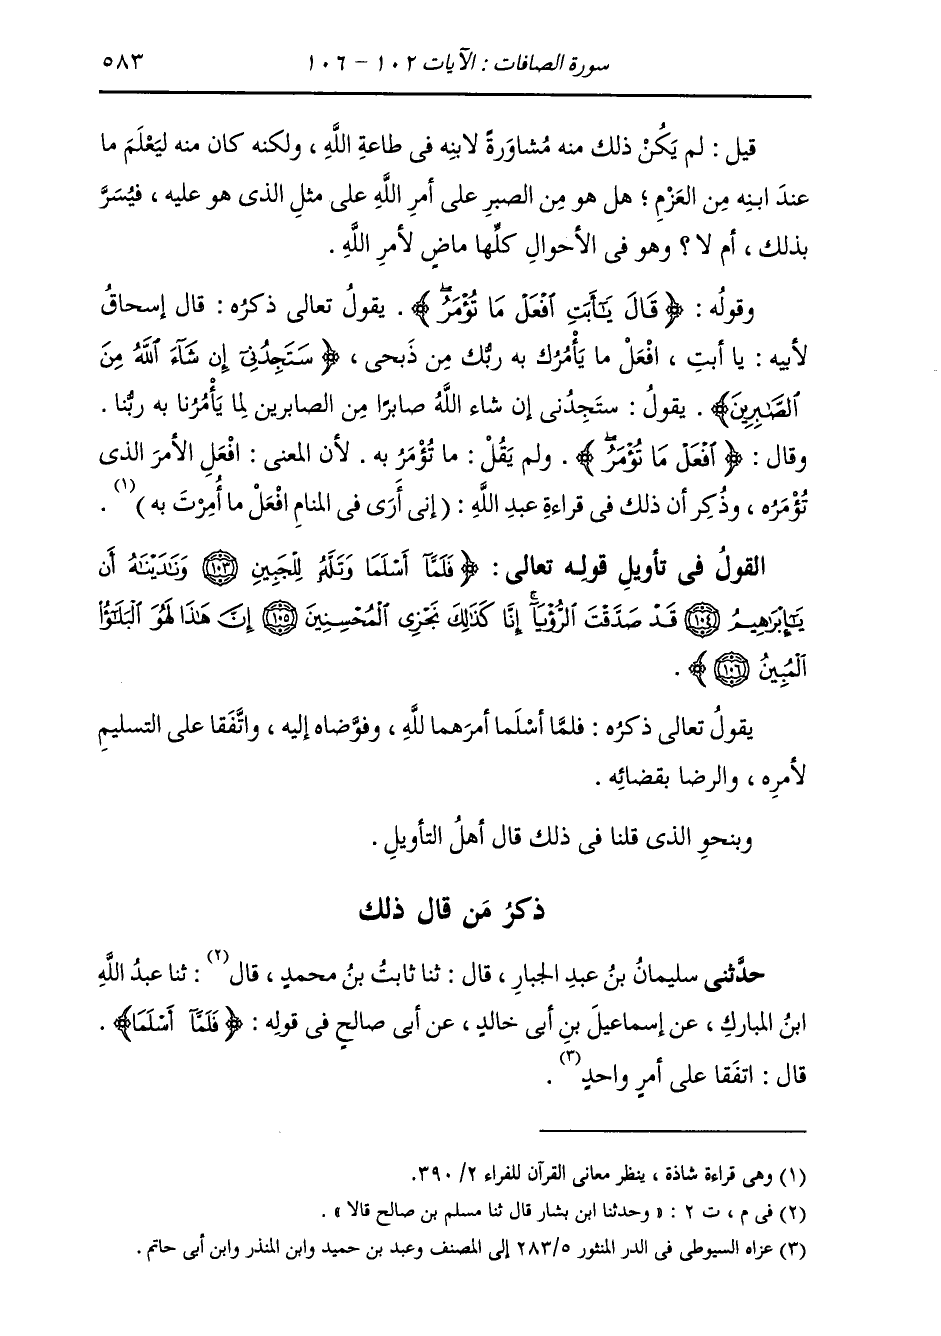 سورة الصافات : الآيات ١٠٢ - ١٠٦ ٥٨٣
قيل : لم يَكُنْ ذلك منه مُشاوَرةً لابنِه فى طاعةِ اللَّهِ ، ولكنه كان منه ليَعْلَمَ ما
عندَ ابنِه مِن العَزْمِ ؛ هل هو مِن الصبرِ على أمرِ اللَّهِ على مثلِ الذى هو عليه ، فيُسَرَّ
بذلك ، أم لا ؟ وهو فى الأحوالِ كلِّها ماضٍ لأمرِ اللَّهِ .
وقولُه : ﴿ قَالَ يَٰٓأَبَتِ ٱفْعَلْ مَا تُؤْمَرُۖ ﴾ . يقولُ تعالى ذكرُه : قال إسحاقُ
لأبيه : يا أبتِ ، افعَلْ ما يَأْمُرُك به ربُّك مِن ذَبحى ، ﴿ سَتَجِدُنِىٓ إِن شَآءَ ٱللَّهُ مِنَ
ٱلصَّٰبِرِينَ﴾ . يقولُ : ستَجِدُنى إن شاء اللَّهُ صابرًا مِن الصابرين لِما يَأْمُرُنا به ربُّنا .
وقال : ﴿ ٱفْعَلْ مَا تُؤْمَرُۖ ﴾ . ولم يَقُلْ : ما تُؤْمَرُ به . لأن المعنى : افعَلِ الأمرَ الذى
تُؤْمَرُه ، وذُكِر أن ذلك فى قراءةِ عبدِ اللَّهِ : ( إنى أَرَى فى المنامِ افْعَلْ ما أُمِرْتَ به )(١) .
القولُ فى تأويلِ قولِه تعالى : ﴿ فَلَمَّآ أَسْلَمَا وَتَلَّهُۥ لِلْجَبِينِ ١٠٣ وَنَٰدَيْنَٰهُ أَن
يَٰٓإِبْرَٰهِيمُ ١٠٤ قَدْ صَدَّقْتَ ٱلرُّءْيَآۚ إِنَّا كَذَٰلِكَ نَجْزِى ٱلْمُحْسِنِينَ ١٠٥ إِنَّ هَٰذَا لَهُوَ ٱلْبَلَٰٓؤُا۟
ٱلْمُبِينُ ١٠٦ ﴾ .
يقولُ تعالى ذكرُه : فلمَّا أسْلَما أمرَهما للَّهِ ، وفوَّضاه إليه ، واتَّفَقا على التسليمِ
لأمرِه ، والرضا بقضائِه .
وبنحوِ الذى قلنا فى ذلك قال أهلُ التأويلِ .
ذكرُ مَن قال ذلك
حدَّثنى سليمانُ بنُ عبدِ الجبارِ ، قال : ثنا ثابتُ بنُ محمدٍ ، قال(٢) : ثنا عبدُ اللَّهِ
ابنُ المباركِ ، عن إسماعيلَ بنِ أبى خالدٍ ، عن أبى صالحٍ فى قولِه : ﴿ فَلَمَّآ أَسْلَمَا﴾ .
قال : اتفَقا على أمرٍ واحدٍ(٣) .
(١) وهى قراءة شاذة ، ينظر معانى القرآن للفراء ٢/ ٣٩٠.
(٢) فى م ، ت ٢ : « وحدثنا ابن بشار قال ثنا مسلم بن صالح قالا » .
(٣) عزاه السيوطى فى الدر المنثور ٢٨٣/٥ إلى المصنف وعبد بن حميد وابن المنذر وابن أبى حاتم .